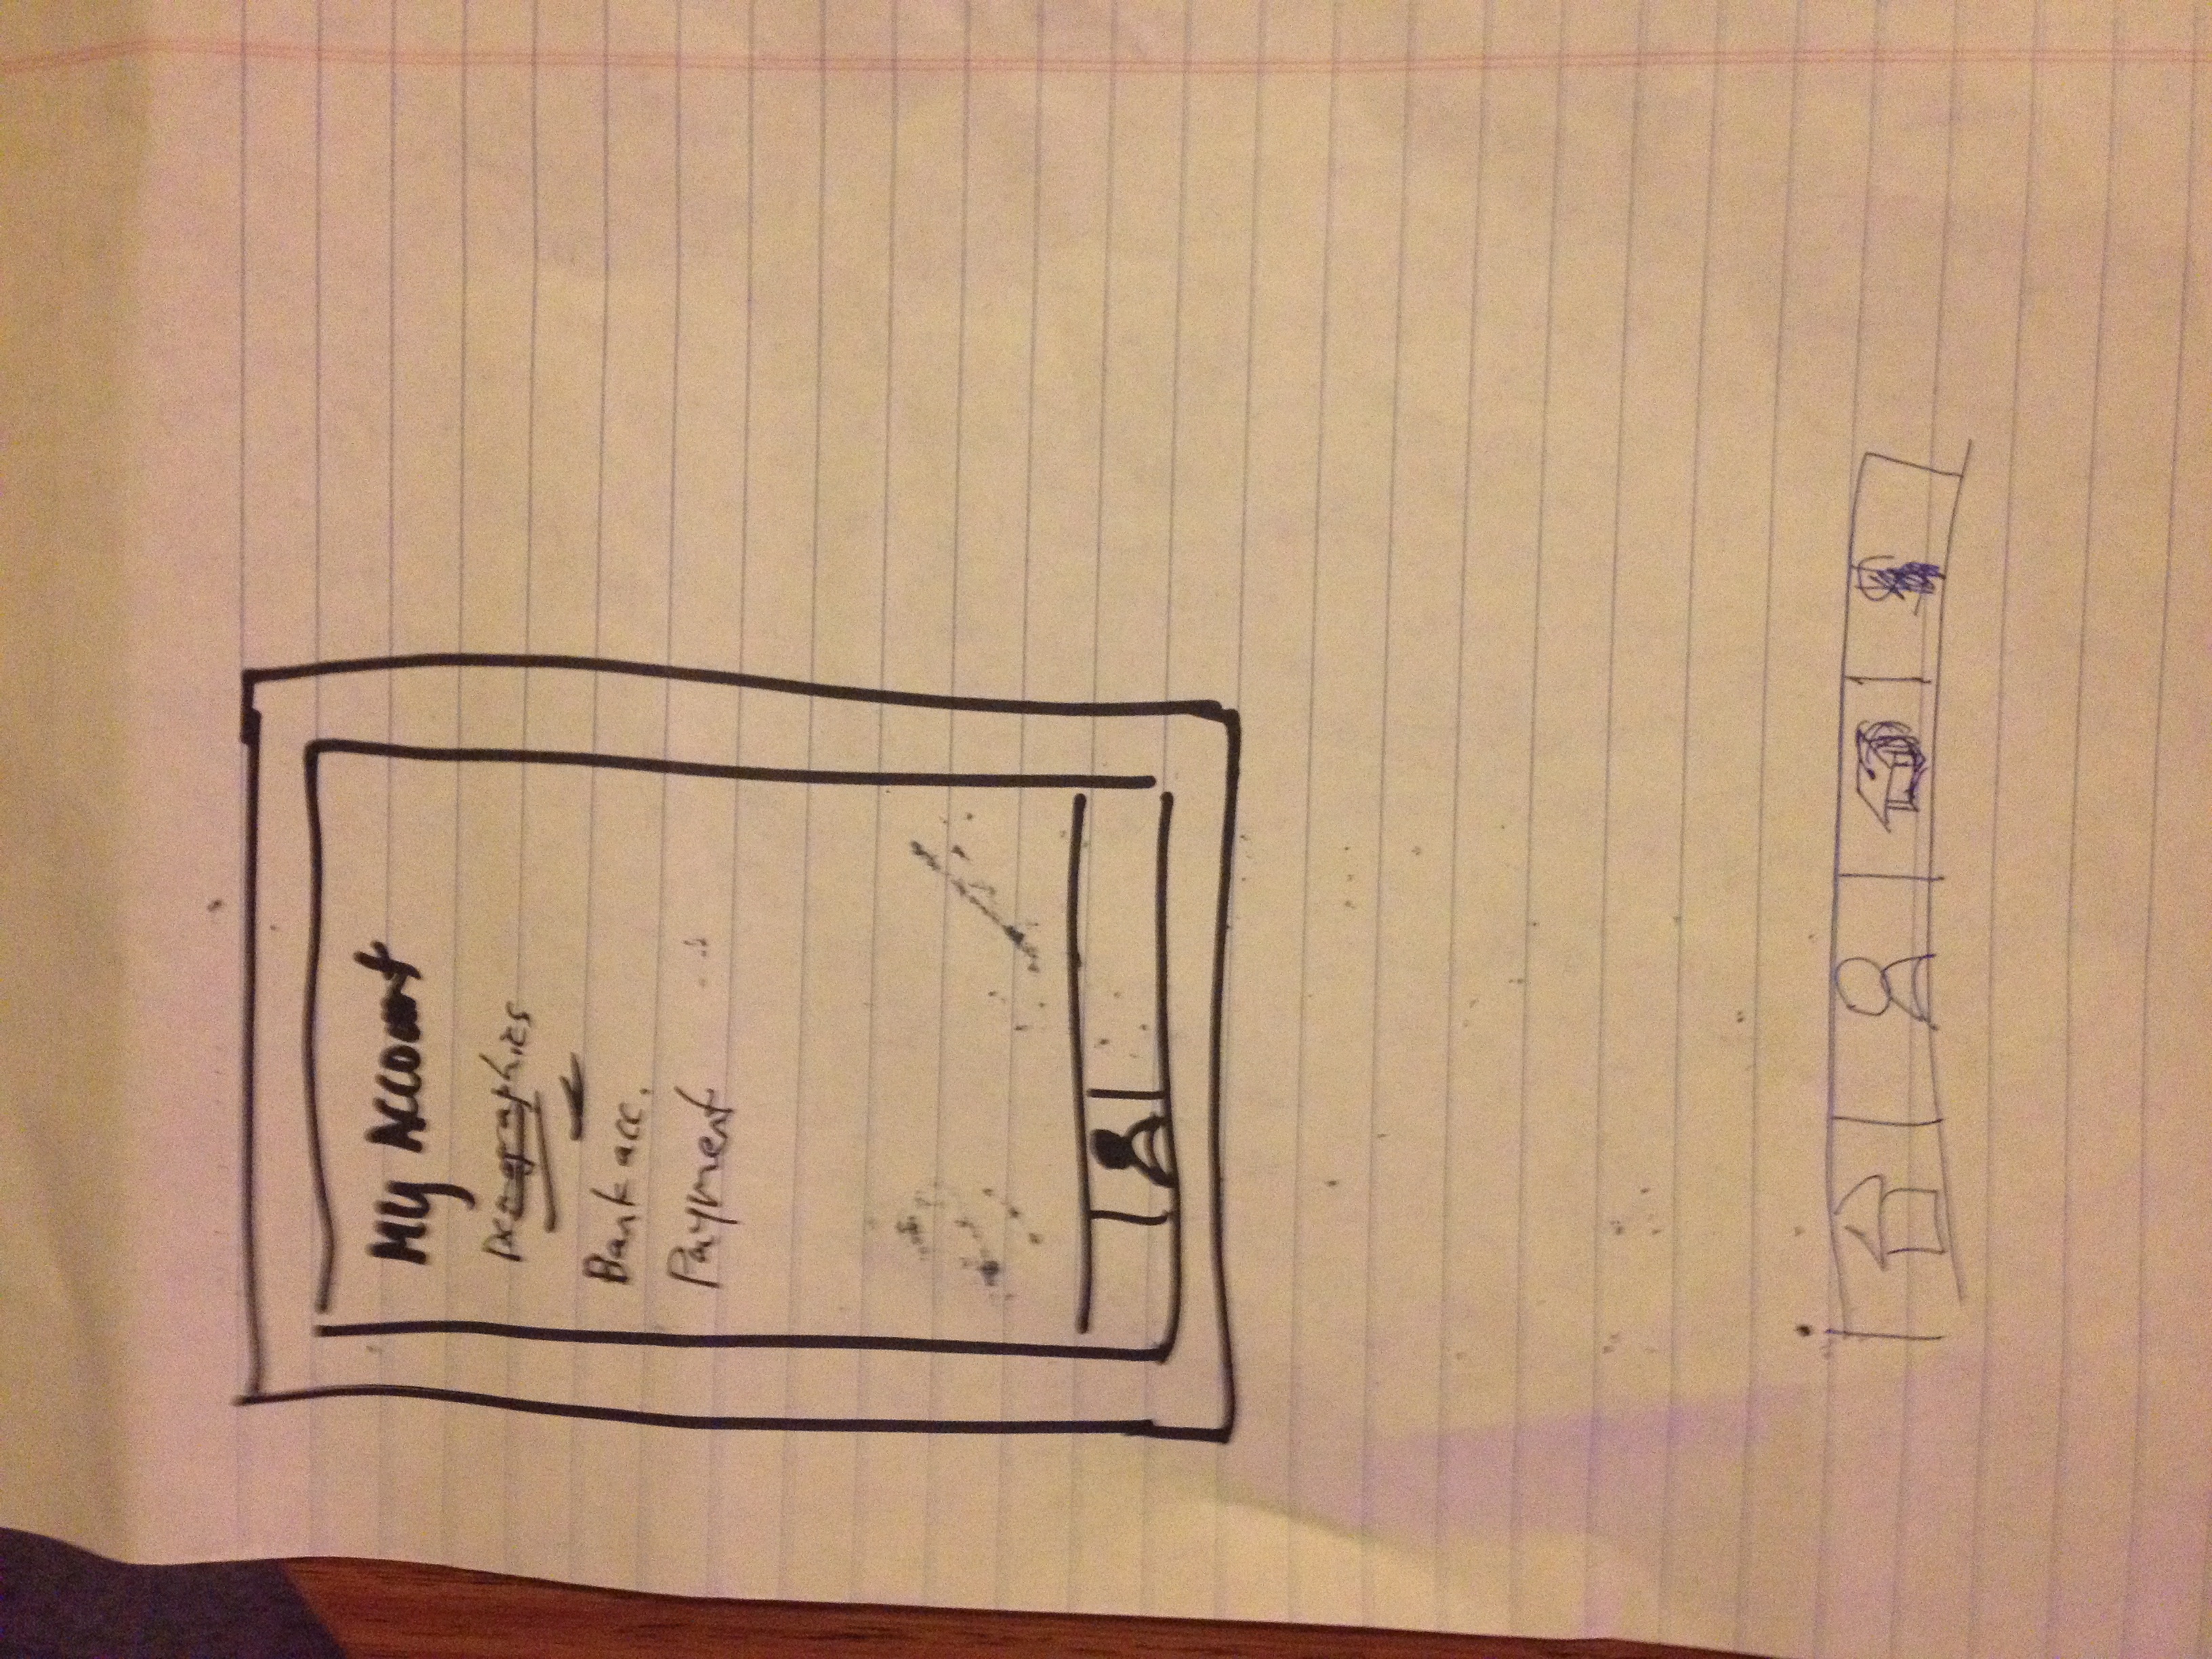 My Account
Demographics
Bank acc.
Payment
$